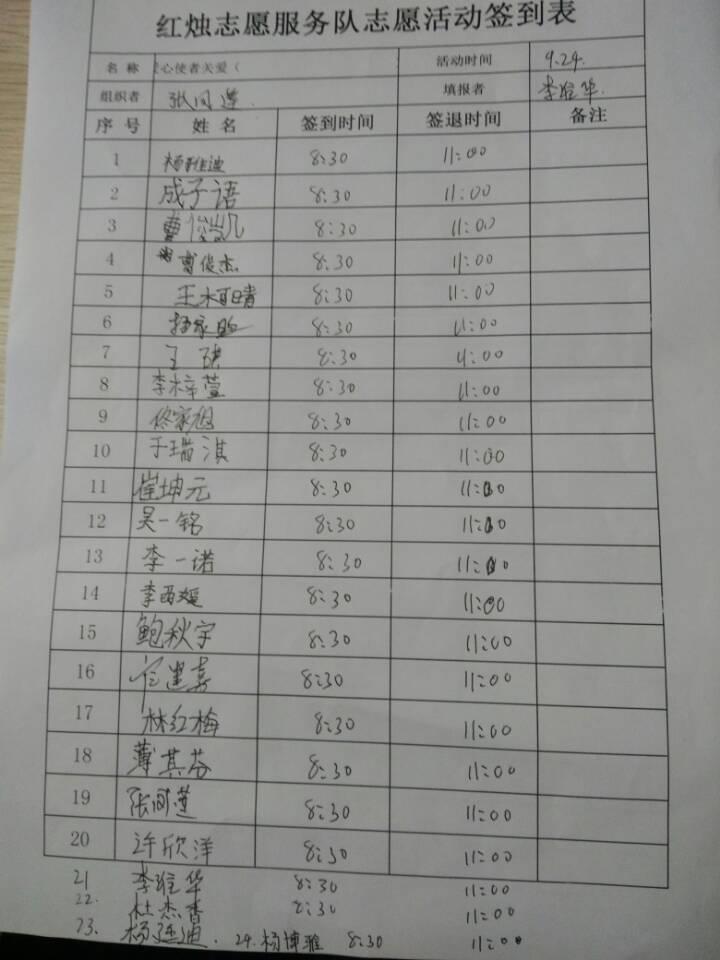 红烛志愿服务队志愿活动签到表
名 称 爱心使者关爱( 活动时间 9.24.
组织者 张闪莲. 填报者 李雅华.
序 号 姓 名 签到时间 签退时间 备注
1 杨雅迪 8:30 11:00
2 成子语 8:30 11:00
3 曹俊凯 8:30 11:00
4 曹俊杰 8:30 11:00
5 王木晴 8:30 11:00
6 8:30 11:00
7 王 8:30 11:00
8 李梓萱 8:30 11:00
9 佟家旭 8:30 11:00
10 于瑞淇 8:30 11:00
11 崔坤元 8:30 11:00
12 吴一铭 8:30 11:00
13 李一诺 8:30 11:00
14 李西媛 8:30 11:00
15 鲍秋宇 8:30 11:00
16 8:30 11:00
17 林红梅 8:30 11:00
18 薄其芬 8:30 11:00
19 张闪莲 8:30 11:00
20 许欣洋 8:30 11:00
21 李雅华 8:30 11:00
22. 杜杰香 8:30 11:00
23. 杨廷迪. 24.杨博雅 8:30 11:00